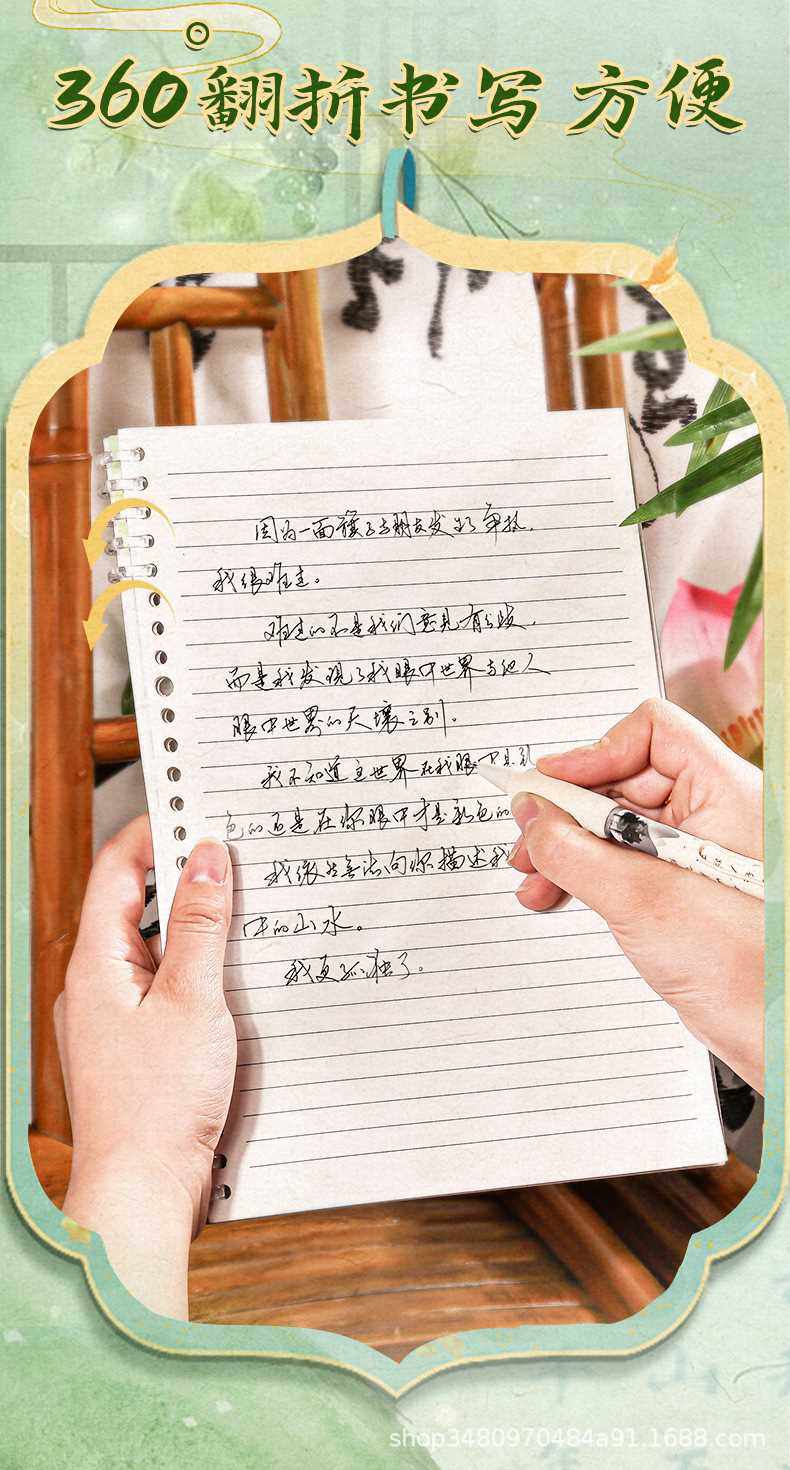 360翻折书写 方便
因为一面旗子与朋友发生了争执,
我很难过。
难过的不是我们意见有分歧,
而是我发现了我眼中世界与他人
眼中世界的天壤之别。
我不知道 世界在我眼中是
色的而是在你眼中才是彩色的
我很 无法向你描述我
中的山水。
我更孤独了。
shop3480970484a91.1688.com